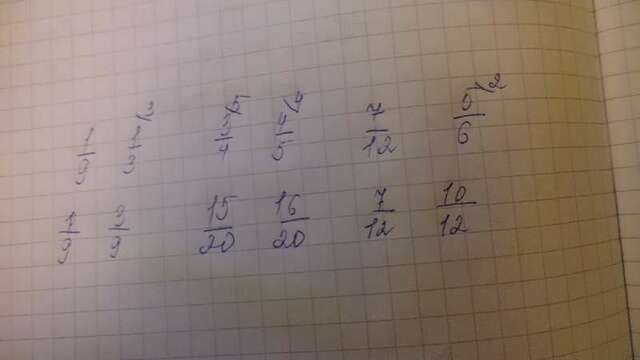 1/9 1\3/3 3\5/4 4\4/5 7/12 5\2/6
1/9 3/9 15/20 16/20 7/12 10/12